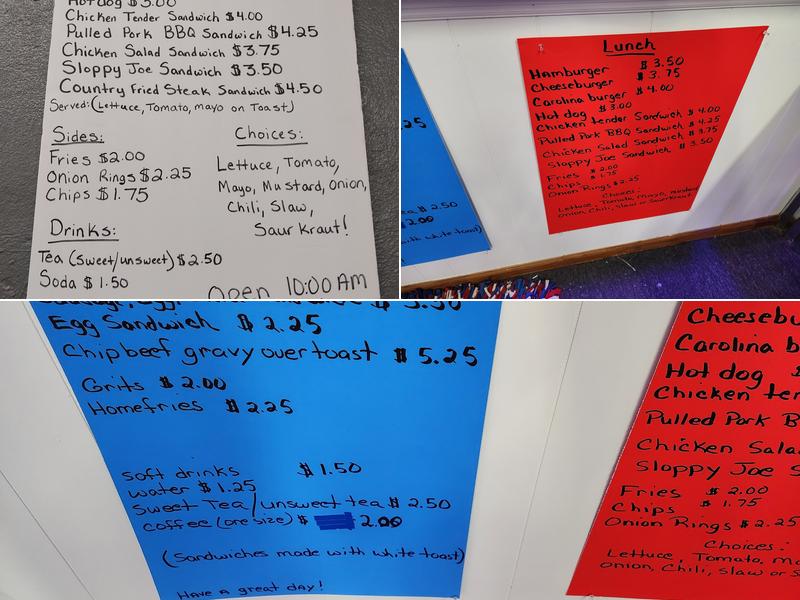 Hot dog $3.00
Chicken Tender Sandwich $4.00
Pulled Pork BBQ Sandwich $4.25
Chicken Salad Sandwich $3.75
Sloppy Joe Sandwich $3.50
Country Fried Steak Sandwich $4.50
Served: (Lettuce, Tomato, mayo on Toast)
Sides:
Fries $2.00
Onion Rings $2.25
Chips $1.75
Choices:
Lettuce, Tomato,
Mayo, Mustard, Onion,
Chili, Slaw,
Saur Kraut!
Drinks:
Tea (Sweet/unsweet) $2.50
Soda $1.50
Open 10:00 AM
25
tea $2.50
2.00
with white toast)
Lunch
Hamburger $3.50
Cheeseburger $3.75
Carolina burger $4.00
Hot dog $3.00
Chicken tender Sandwich $4.00
Pulled Pork BBQ Sandwich $4.25
Chicken Salad Sandwich $3.75
Sloppy Joe Sandwich $3.50
Fries $2.00
Chips $1.75
Onion Rings $2.25
Choices:
Lettuce, Tomato, Mayo, mustard
Onion, Chili, Slaw or SauerKraut
3.50
Egg Sandwich $2.25
Chipbeef gravy over toast $5.25
Grits $2.00
Homefries $2.25
soft drinks $1.50
water $1.25
Sweet Tea/unsweet tea $2.50
coffee (one size) $ 2.00
(Sandwiches made with white toast)
Have a great day!
Cheesebu
Carolina b
Hot dog $
Chicken ten
Pulled Pork B
Chicken Sala
Sloppy Joe S
Fries $2.00
Chips $1.75
Onion Rings $2.25
Choices:
Lettuce, Tomato, ma
Onion, Chili, Slaw or S